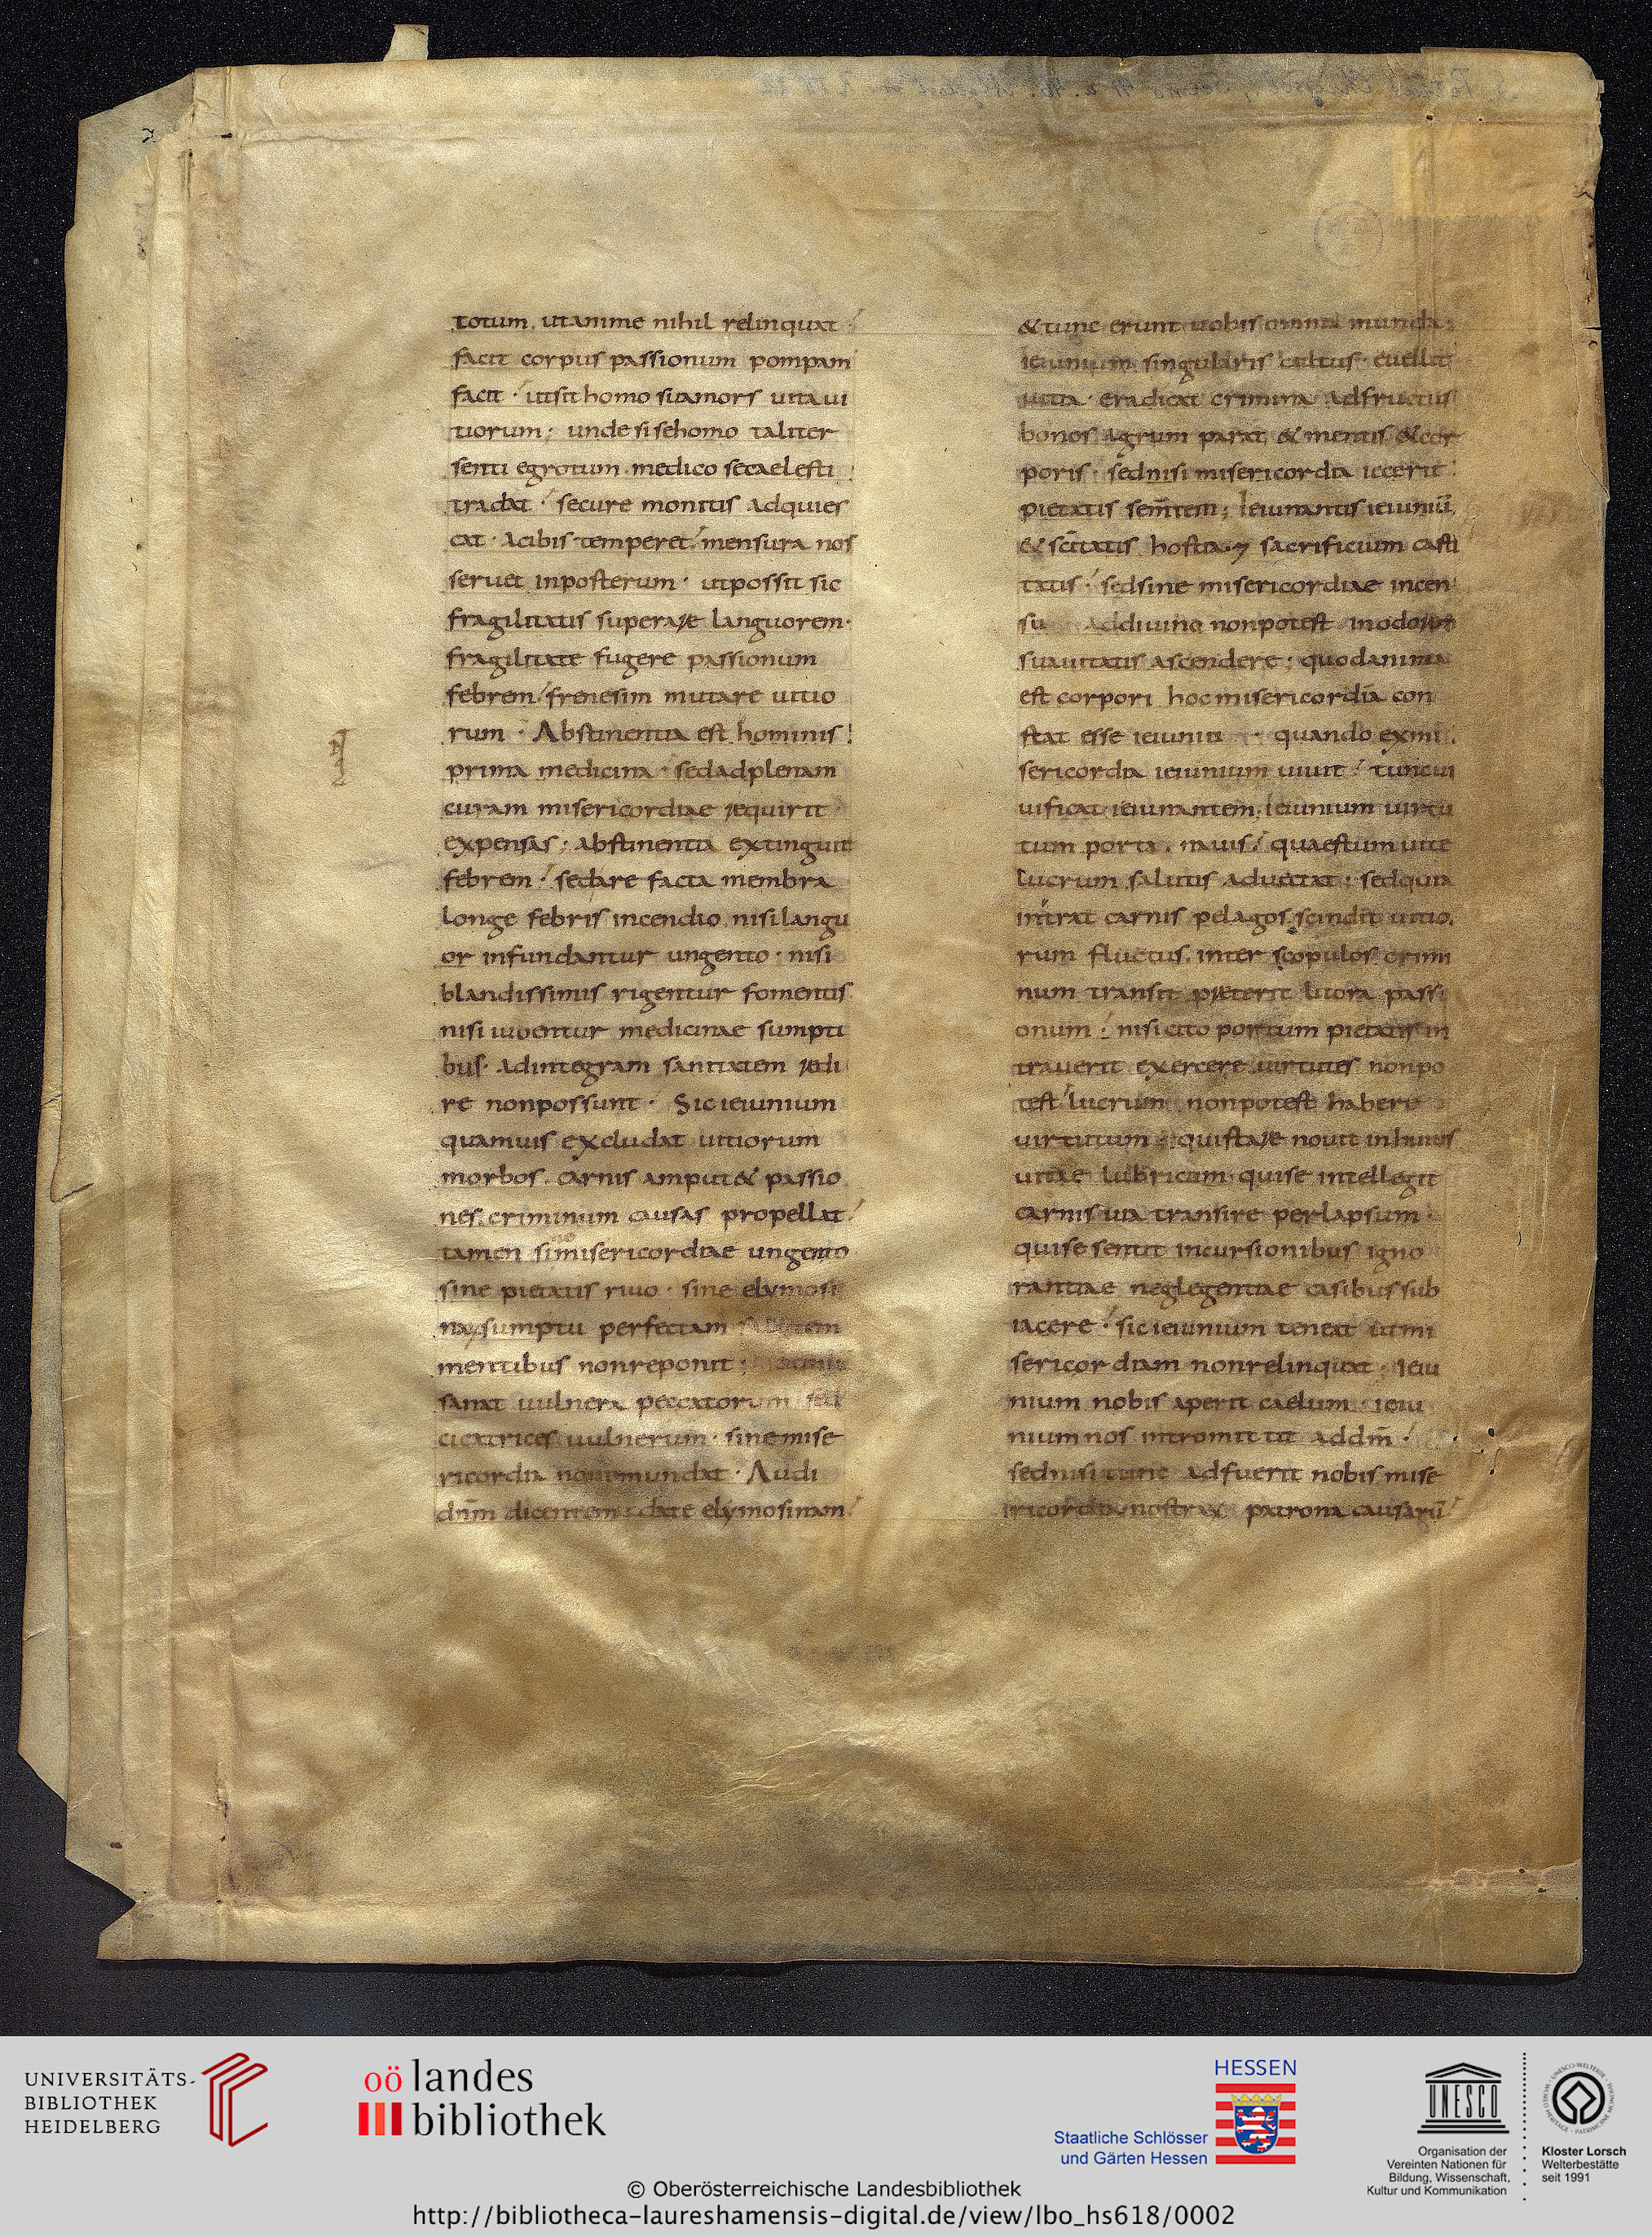 totum, utanime nihil relinquat
facit corpus passionum pompam
facit · utsit homo suamors uita ui
tiorum; unde si sehomo taliter
senti egrotum medico secaelesti
tradat · secure monitis adquies
cat · acibis temperet mensura nos
seruet inposterum · utpossit sic
fragilitatis superare languorem·
fragilitate fugere passionum
febrem frenesim mutare uitio
rum · Abstinentia est hominis
prima medicina · sedadplenam
curam misericordiae requirit
expensas; abstinentia extinguit
febrem · sedare facta membra
longe febris incendio nisi langu
or infundantur ungento · nisi
blandissimis rigentur fomentis
nisi iubentur medicinae sumpti
bus· adintegram sanitatem redi
re nonpossunt · Sic ieiunium
quamuis excludat uitiorum
morbos. carnis amput& passio
nes. criminum causas propellat
tamen si misericordiae ungento
sine pietatis riuo · sine elymosi
nae sumptu perfectam
mentibus nonreponit;
sanat uulnera peccatorum sed
cicatrices uulnerum · sine mise
ricordia nonemundat · Audi
dnm̄ dicentem; date elymosinam
& tunc erunt uobis omnia munda;
ieiunium singularis cultus · euellit
uitia · eradicat crimina adfructus
bonos agrum parat, & mentis & cor
poris · sednisi misericordia iecerit
pietatis sem̄tem; Ieiunantis ieiuniū
& sc̄itatis hostia · 7 sacrificium casti
tatis · sedsine misericordiae incen
su addiuino nonpotest inodorem
suauitatis ascendere; quodanima
est corpori hocmisericordia con
stat esse ieiunii · quando exmi
sericordia ieiunium uiuit · tuncui
uificat ieiunantem; Ieiunium uirtu
tum porta. nauis quaestum uite
lucrum salutis aduectat; sedquia
intrat carnis pelagos scindit uitio.
rum fluctus. inter scopulos crimi
num transit praeterit litora passi
onum; nisi cito portum pietatis in
trauerit exercere uirtutes nonpo
test lucrum nonpotest habere
uirtutum; quistare nouit inhuius
uitae lubricum quise intellegit
carnis uia transire perlapsum ·
quise sentit incursionibus igno
rantiae neglegentiae casibus sub
iacere · sic ieiunium teneat utmi
sericordiam nonrelinquat; Ieiu
nium nobis aperit caelum; ieiu
nium nos intromittit addm̄ ·
sednisi tunc adfuerit nobis mise
ricordia nostrae patrona causarū
UNIVERSITÄTS-
BIBLIOTHEK
HEIDELBERG
oö landes
bibliothek
HESSEN
Staatliche Schlösser
und Gärten Hessen
UNESCO
Organisation der
Vereinten Nationen für
Bildung, Wissenschaft,
Kultur und Kommunikation
Kloster Lorsch
Welterbestätte
seit 1991
© Oberösterreichische Landesbibliothek
http://bibliotheca-laureshamensis-digital.de/view/lbo_hs618/0002